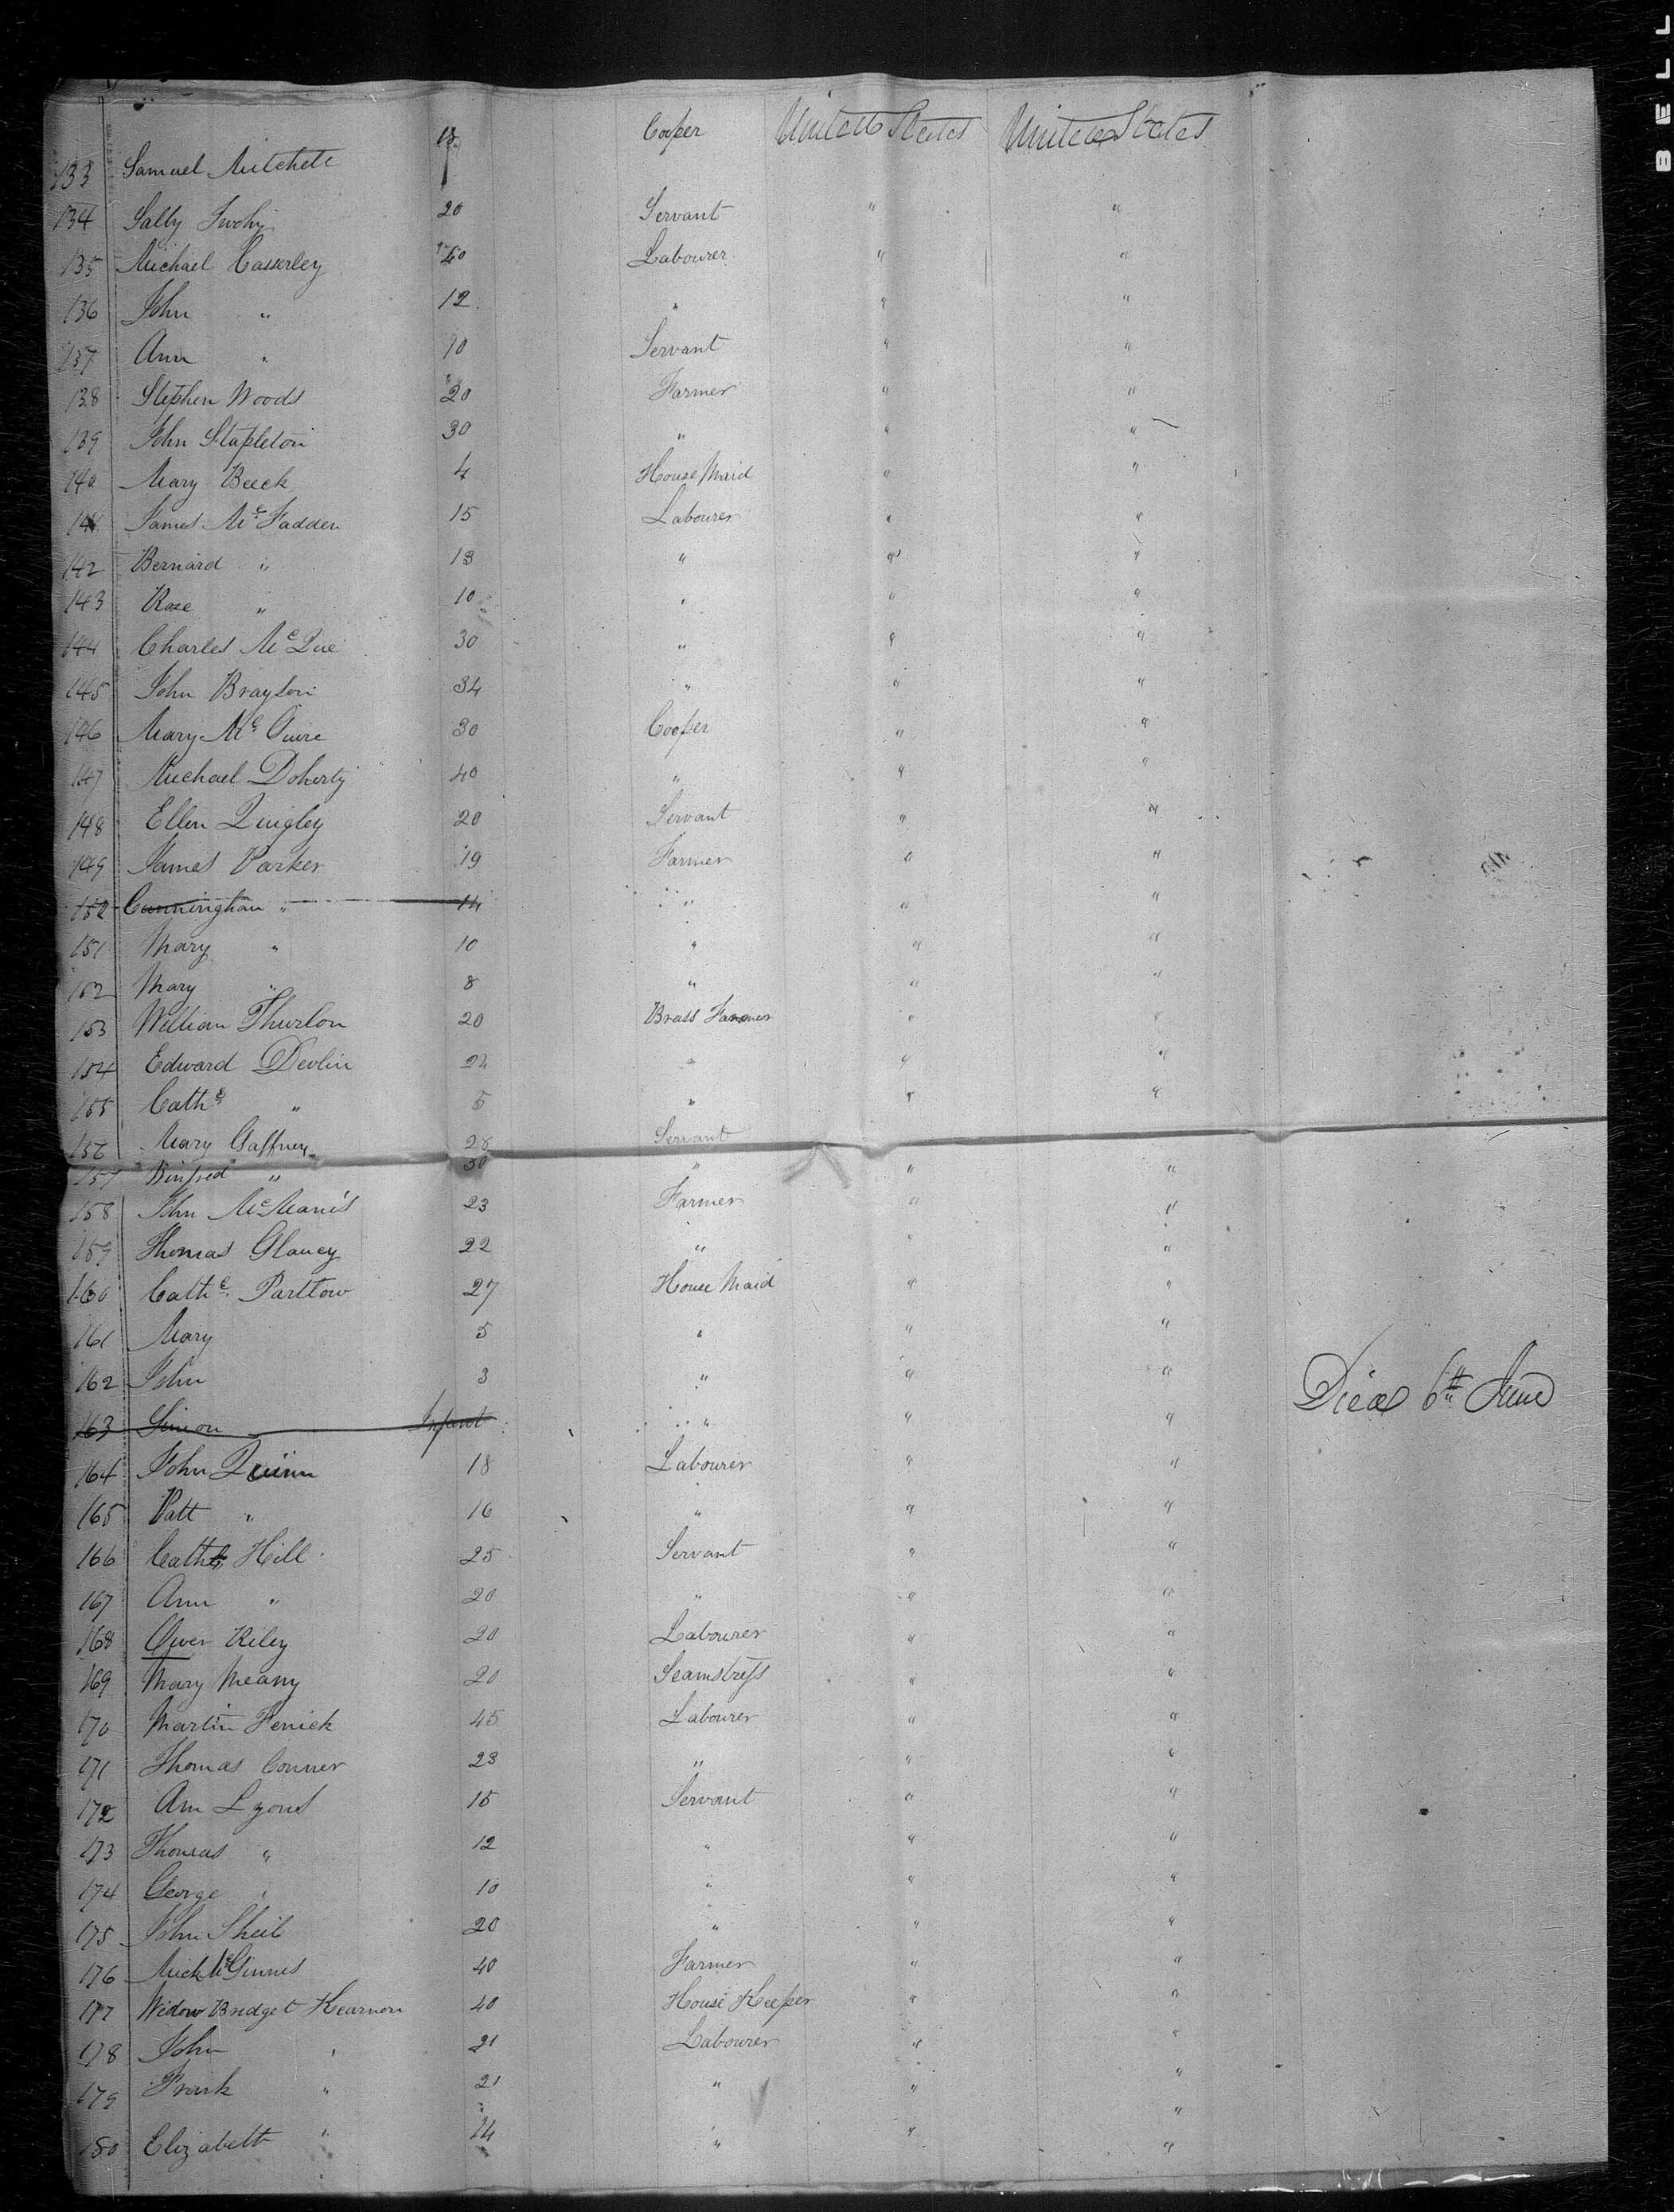 BELL
133 Samuel Mitchell 18 Cooper United States United States
134 Sally 20 Servant " "
135 Michael Casserley 40 Labourer " "
136 John " 12 " " "
137 Ann " 10 Servant " "
138 Stephen Woods 20 Farmer " "
139 John Stapleton 30 " " "
140 Mary Beeck 4 House Maid " "
141 James McFadden 15 Labourer " "
142 Bernard " 13 " " "
143 Rose " 10 " " "
144 Charles Mc 30 " " "
145 John Brayson 34 " " "
146 Mary McGuire 30 Cooper " "
147 Michael Doherty 40 " " "
148 Ellen Quigley 20 Servant " "
149 James Parker 19 Farmer " "
150 Cunningham " 14 " " "
151 Mary " 10 " " "
152 Mary " 8 " " "
153 William Thurlon 20 Brass Farmer " "
154 Edward Devlin 24 " " "
155 Cathe " 5 " " "
156 Mary Gaffney 28 Servant
157 Winfred " 30 " " "
158 John McManis 23 Farmer " "
159 Thomas Glancy 22 " " "
160 Cathe Parttow 27 House Maid " "
161 Mary 5 " " "
162 John 3 " " "
163 Simon Infant " " " Died 6th June
164 John Quinn 18 Labourer " "
165 Patt " 16 " " "
166 Cathe Hill 25 Servant " "
167 Ann " 20 " " "
168 Owen Riley 20 Labourer " "
169 Mary Meany 20 Seamstress " "
170 Martin Ferrick 45 Labourer " "
171 Thomas Conner 23 " " "
172 Ann Lyons 15 Servant " "
173 Thomas " 12 " " "
174 George " 10 " " "
175 John Sheil 20 " " "
176 Mick McGinnes 40 Farmer " "
177 Widow Bridget Hearnon 40 House Keeper " "
178 John " 21 Labourer " "
179 Frank " 21 " " "
180 Elizabeth " 14 " " "